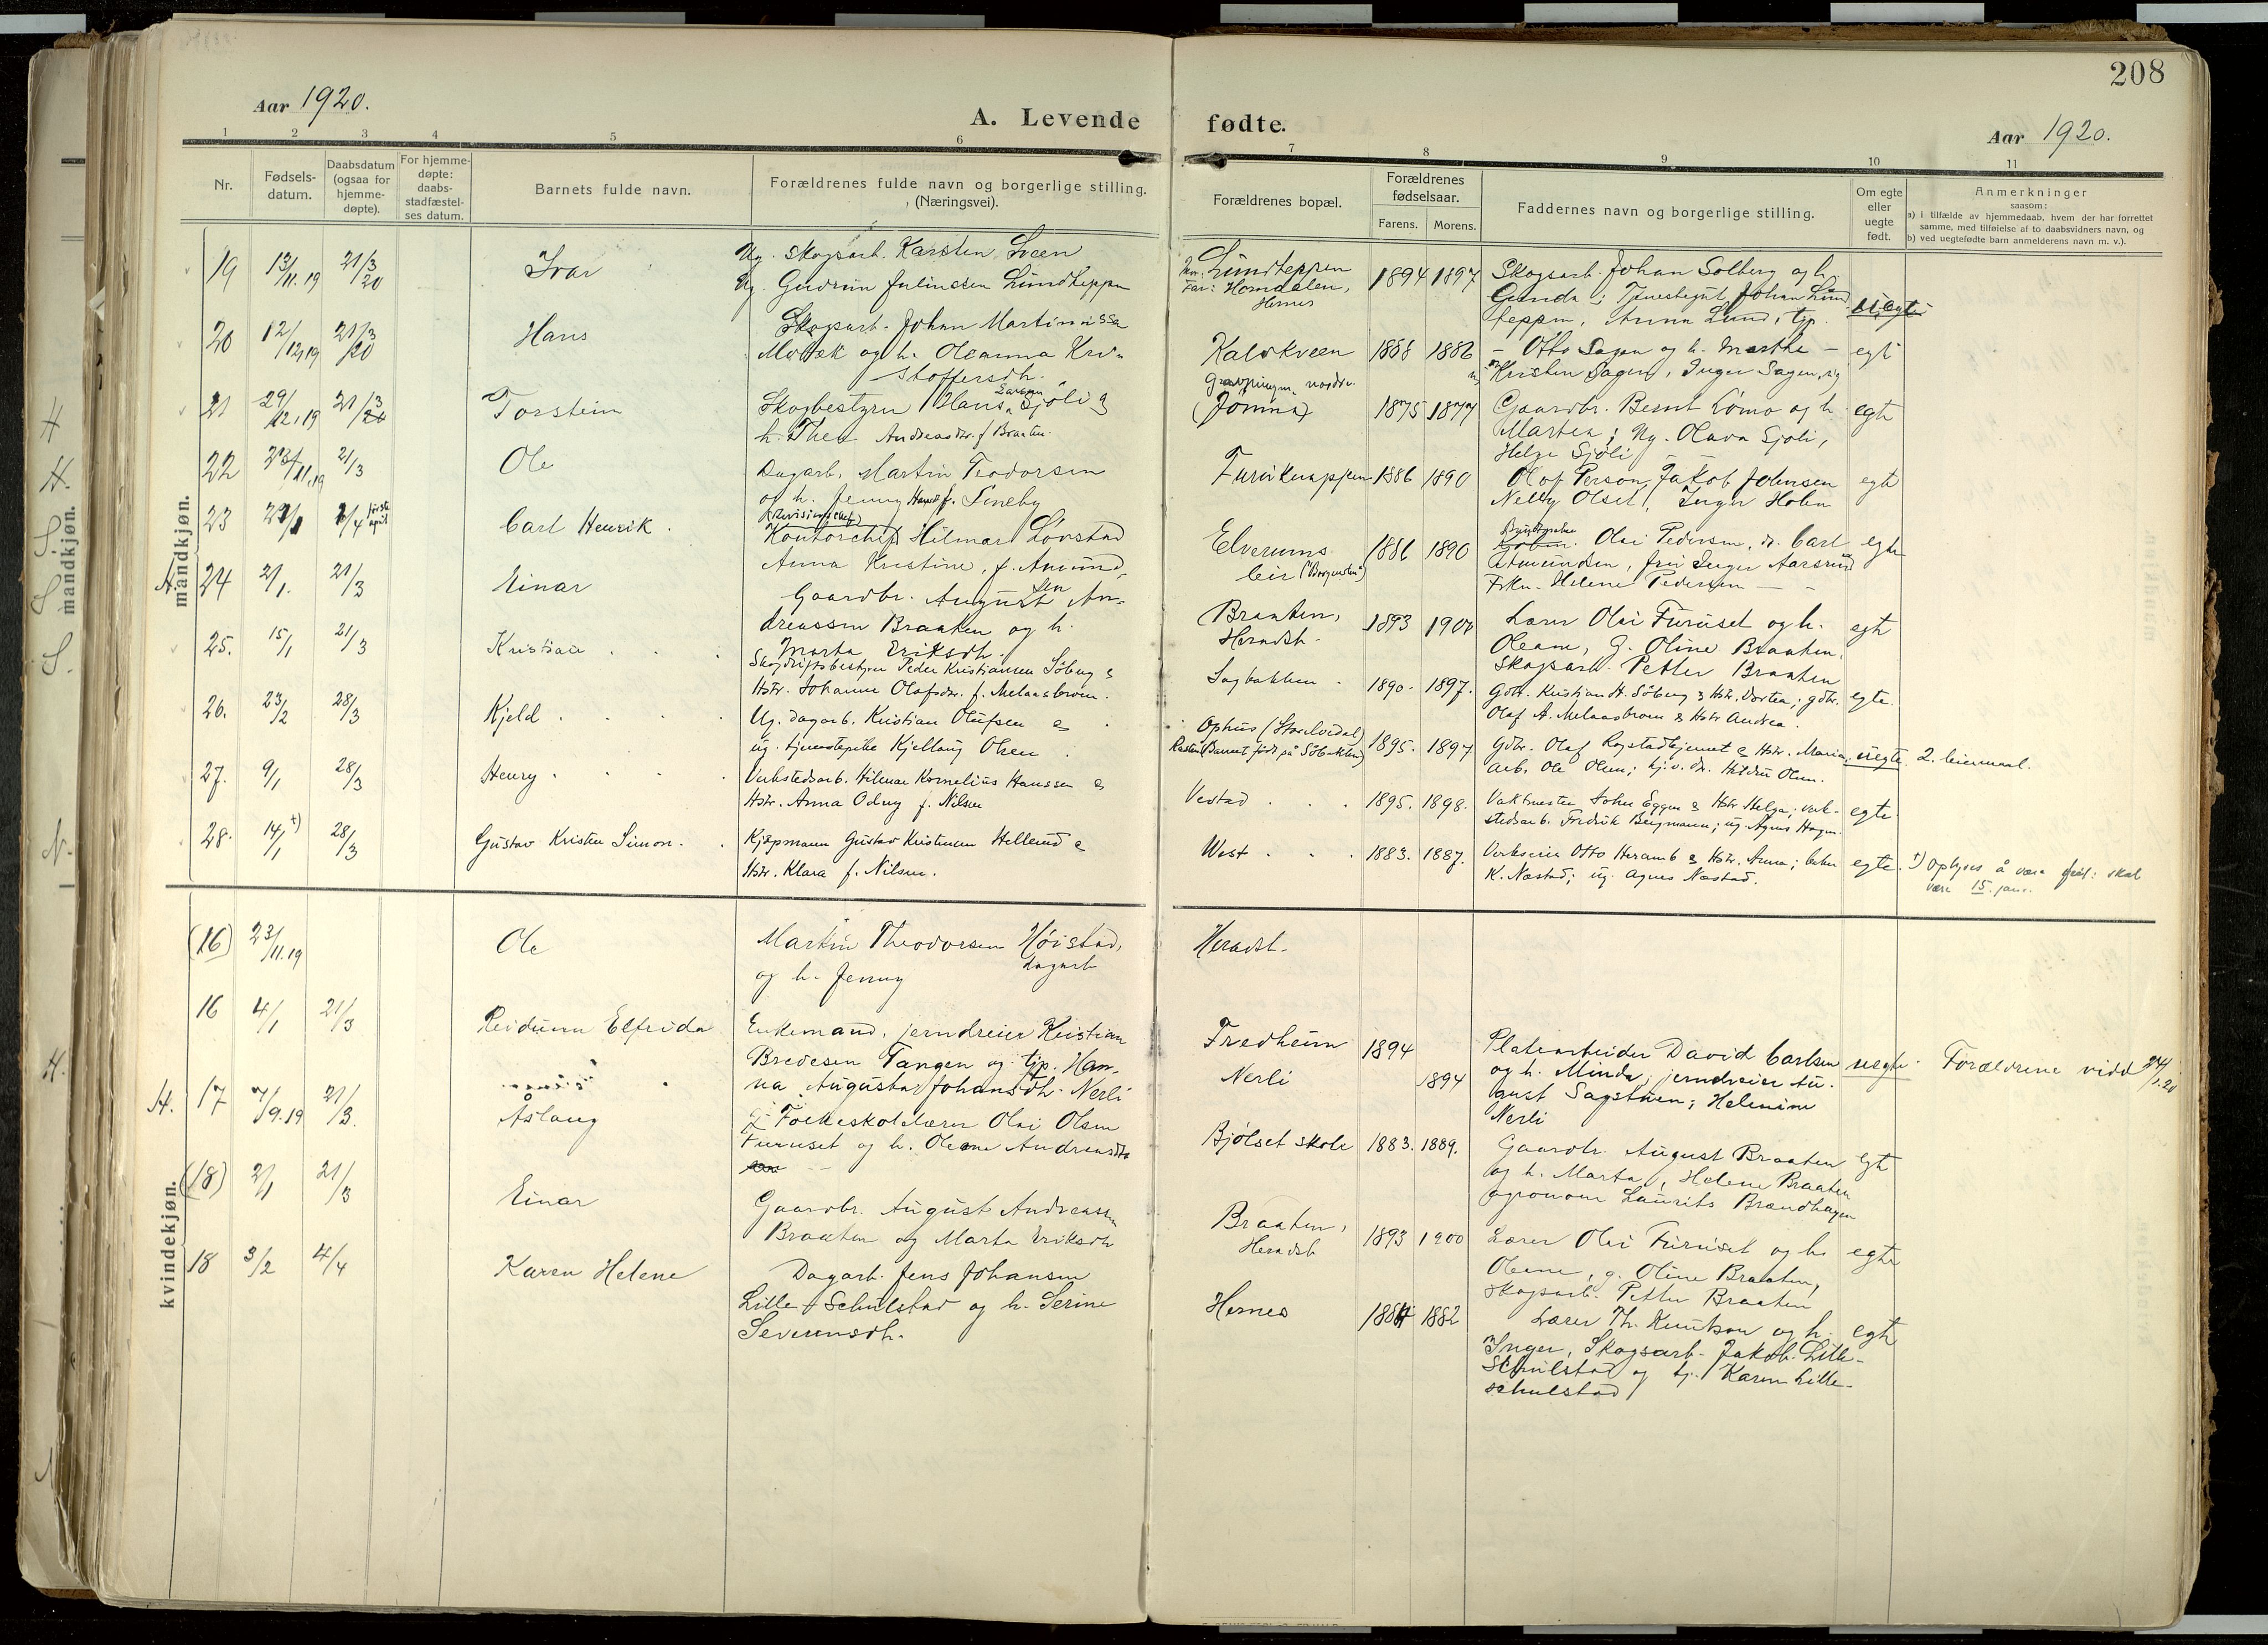 208
Aar 1920.
A. Levende fødte.
Aar 1920.
1 2 3 4 5 6 7 8 9 10 11
Nr.
Fødsels-
datum.
Daabsdatum
(ogsaa for
hjemme-
døpte).
For hjemme-
døpte:
daabs-
stadfæstel-
ses datum.
Barnets fulde navn.
Forældrenes fulde navn og borgerlige stilling.
(Næringsvei).
Forældrenes bopæl.
Forældrenes
fødselsaar.
Farens. Morens.
Faddernes navn og borgerlige stilling.
Om egte
eller
uegte
født.
Anmerkninger
saasom:
a) i tilfælde av hjemmedaab, hvem der har forrettet
samme, med tilføielse af to daabsvidners navn, og
b) ved uegtefødte barn anmelderens navn m. v.).
mandkjøn.
19 13/11.19 21/3 20 Ivar
Ug. Skogsarb. Karsten Sveen
Ug. Gudrun Julinssen Lundteppen
Lundteppen
Far: Horndalen,
Hernes
1894 1897
Skogsarb. Johan Solberg og h.
Gunda; Tjenestegut Johan Lund
teppen, Anna Lund, tjp.
uegte
20 12/12.19 21/3 20 Hans
Skogsarb. Johan Martin
Mobæk og h. Oleanna Kri-
stoffersdh.
Kalvkveen
1888 1886
- Otto Sagen og h. Marthe -
Kristen Sagen, Inger Sagen, ug
egt
21 29/12.19 21/3 20 Torstein
Skogbestyrer Hans Larsen Sjøli og
h. Thea Andreasdr. f. Braaten.
nordre
(Jømna)
1875 1877
Gaardbr. Bernt Lømo og h.
Marthea; Ug. Olava Sjøli,
Helge Sjøli
egte
22 23/11.19 21/3 Ole
Dagarb. Martin Teodorsen
og h. Jenny f. Sineby
Furuknappen
1886 1890
Olof Person, Jakob Johnsen
Nelly Olset, Inger Holen
egt
23 4/4 første april Carl Henrik.
(Revisionschef)
Kontorchef Hilmar Løvstad
Anna Kristine, f. Amund-
sen
Elverums
leir ("Borgund")
1886 1890
Olai Pedersen, Carl
Amundsen, fru Inger Aarsrud
Frkn. Helene Pedersen
egte
24 2/1. 21/3 Einar
Gaardbr. August An-
dreassen Braaten og h.
Marta Eriksdh.
Braaten,
Heradsb.
1893 1900
Lærer Olai Furuset og h.
Oleane, g. Oline Braaten,
Skogsarb. Petter Braaten
egt
25. 15/1 21/3 Kristian
Skogdriftsbestyrer Peder Kristiansen Søberg &
Hstr. Johanne Olafsdr. f. Melaasbroen.
Sagbakken
1890. 1897.
Gbr. Kristian H. Søberg & Hstr. Dortea; gdbr.
Olaf A. Melaasbroen & Hstr Andrea.
egte.
26. 23/2 28/3 Kjeld
Ug. dagarb. Kristian Olufsen &
ug. tjenestepike Kjellaug Olsen
Ophus (Storelvedal)
(Barnet født på Søbakken)
1895. 1897
Gdbr. Olaf Rogstadkjernet & Hstr. Maria,
Arb. Ole Olsen; Hildur Olsen.
uegte. 2. leiermaal.
27. 9/1 28/3 Henry
Verkstedsarb. Hilmar Kornelius Hanssen &
Hstr. Anna Odny f. Nilsen
Vestad
1895. 1898.
Vaktmester Johan Eggen & Hstr Helga; verk-
stedsarb. Fredrik Bergmann; ug. Agnes Hagen.
egte.
28. 14/1 †) 28/3 Gustav Kristen Simon.
Kjøpmann Gustav Kristensen Hellerud &
Hstr. Klara f. Nilsen.
Vest
1883. 1887.
Verkseier Otto Heramb & Hstr. Anna;
K. Næstad; ug. Agnes Næstad.
egte.
†) Oplyses å være feil: skal
være 15. jan.
kvindekjøn.
(16) 23/11.19 Ole
Martin Theodorsen Høistad,
dagarb
og h. Jenny
Heradsb.
16 4/1 21/3 Reidunn Elfrida
Enkemand, jerndreier Kristian
Bredesen Tangen og tjp. Han-
na Augusta Johansdh. Nerli
Fredheim
Nerli
1894
1894
Platearbeider David Carlsen
og h. Minda; jerndreier Au-
gust Sagstuen; Helenine
Nerli
uegte
Forældrene vidd 24/1.20
H. 17 7/9.19 21/3. Åslaug
Folkeskolelærer Olai Olsen
Furuset og h. Oleane Andreasdtr
Bjølset skole
1883. 1889.
Gaardbr. August Braaten
og h. Marta, Helene Braaten
agronom Laurits Brændhagen
egt
(18) 2/1 21/3 Einar
Gaardbr. August Andreassen
Braaten og Marta Eriksdh
Braaten,
Heradsb
1893 1900
Lærer Olai Furuset og h.
Oleane, g. Oline Braaten,
Skogsarb. Petter Braaten
egte
18 3/2 4/4 Karen Helene
Dagarb. Jens Johansen
Lille-Schulstad og h. Serine
Severinsdh.
Hernes
1884 1882
Lærer Th. Knutson og h.
Inger, Skogsarb. Jakob Lille-
Schulstad og tj. Karen Lille-
schulstad
egte